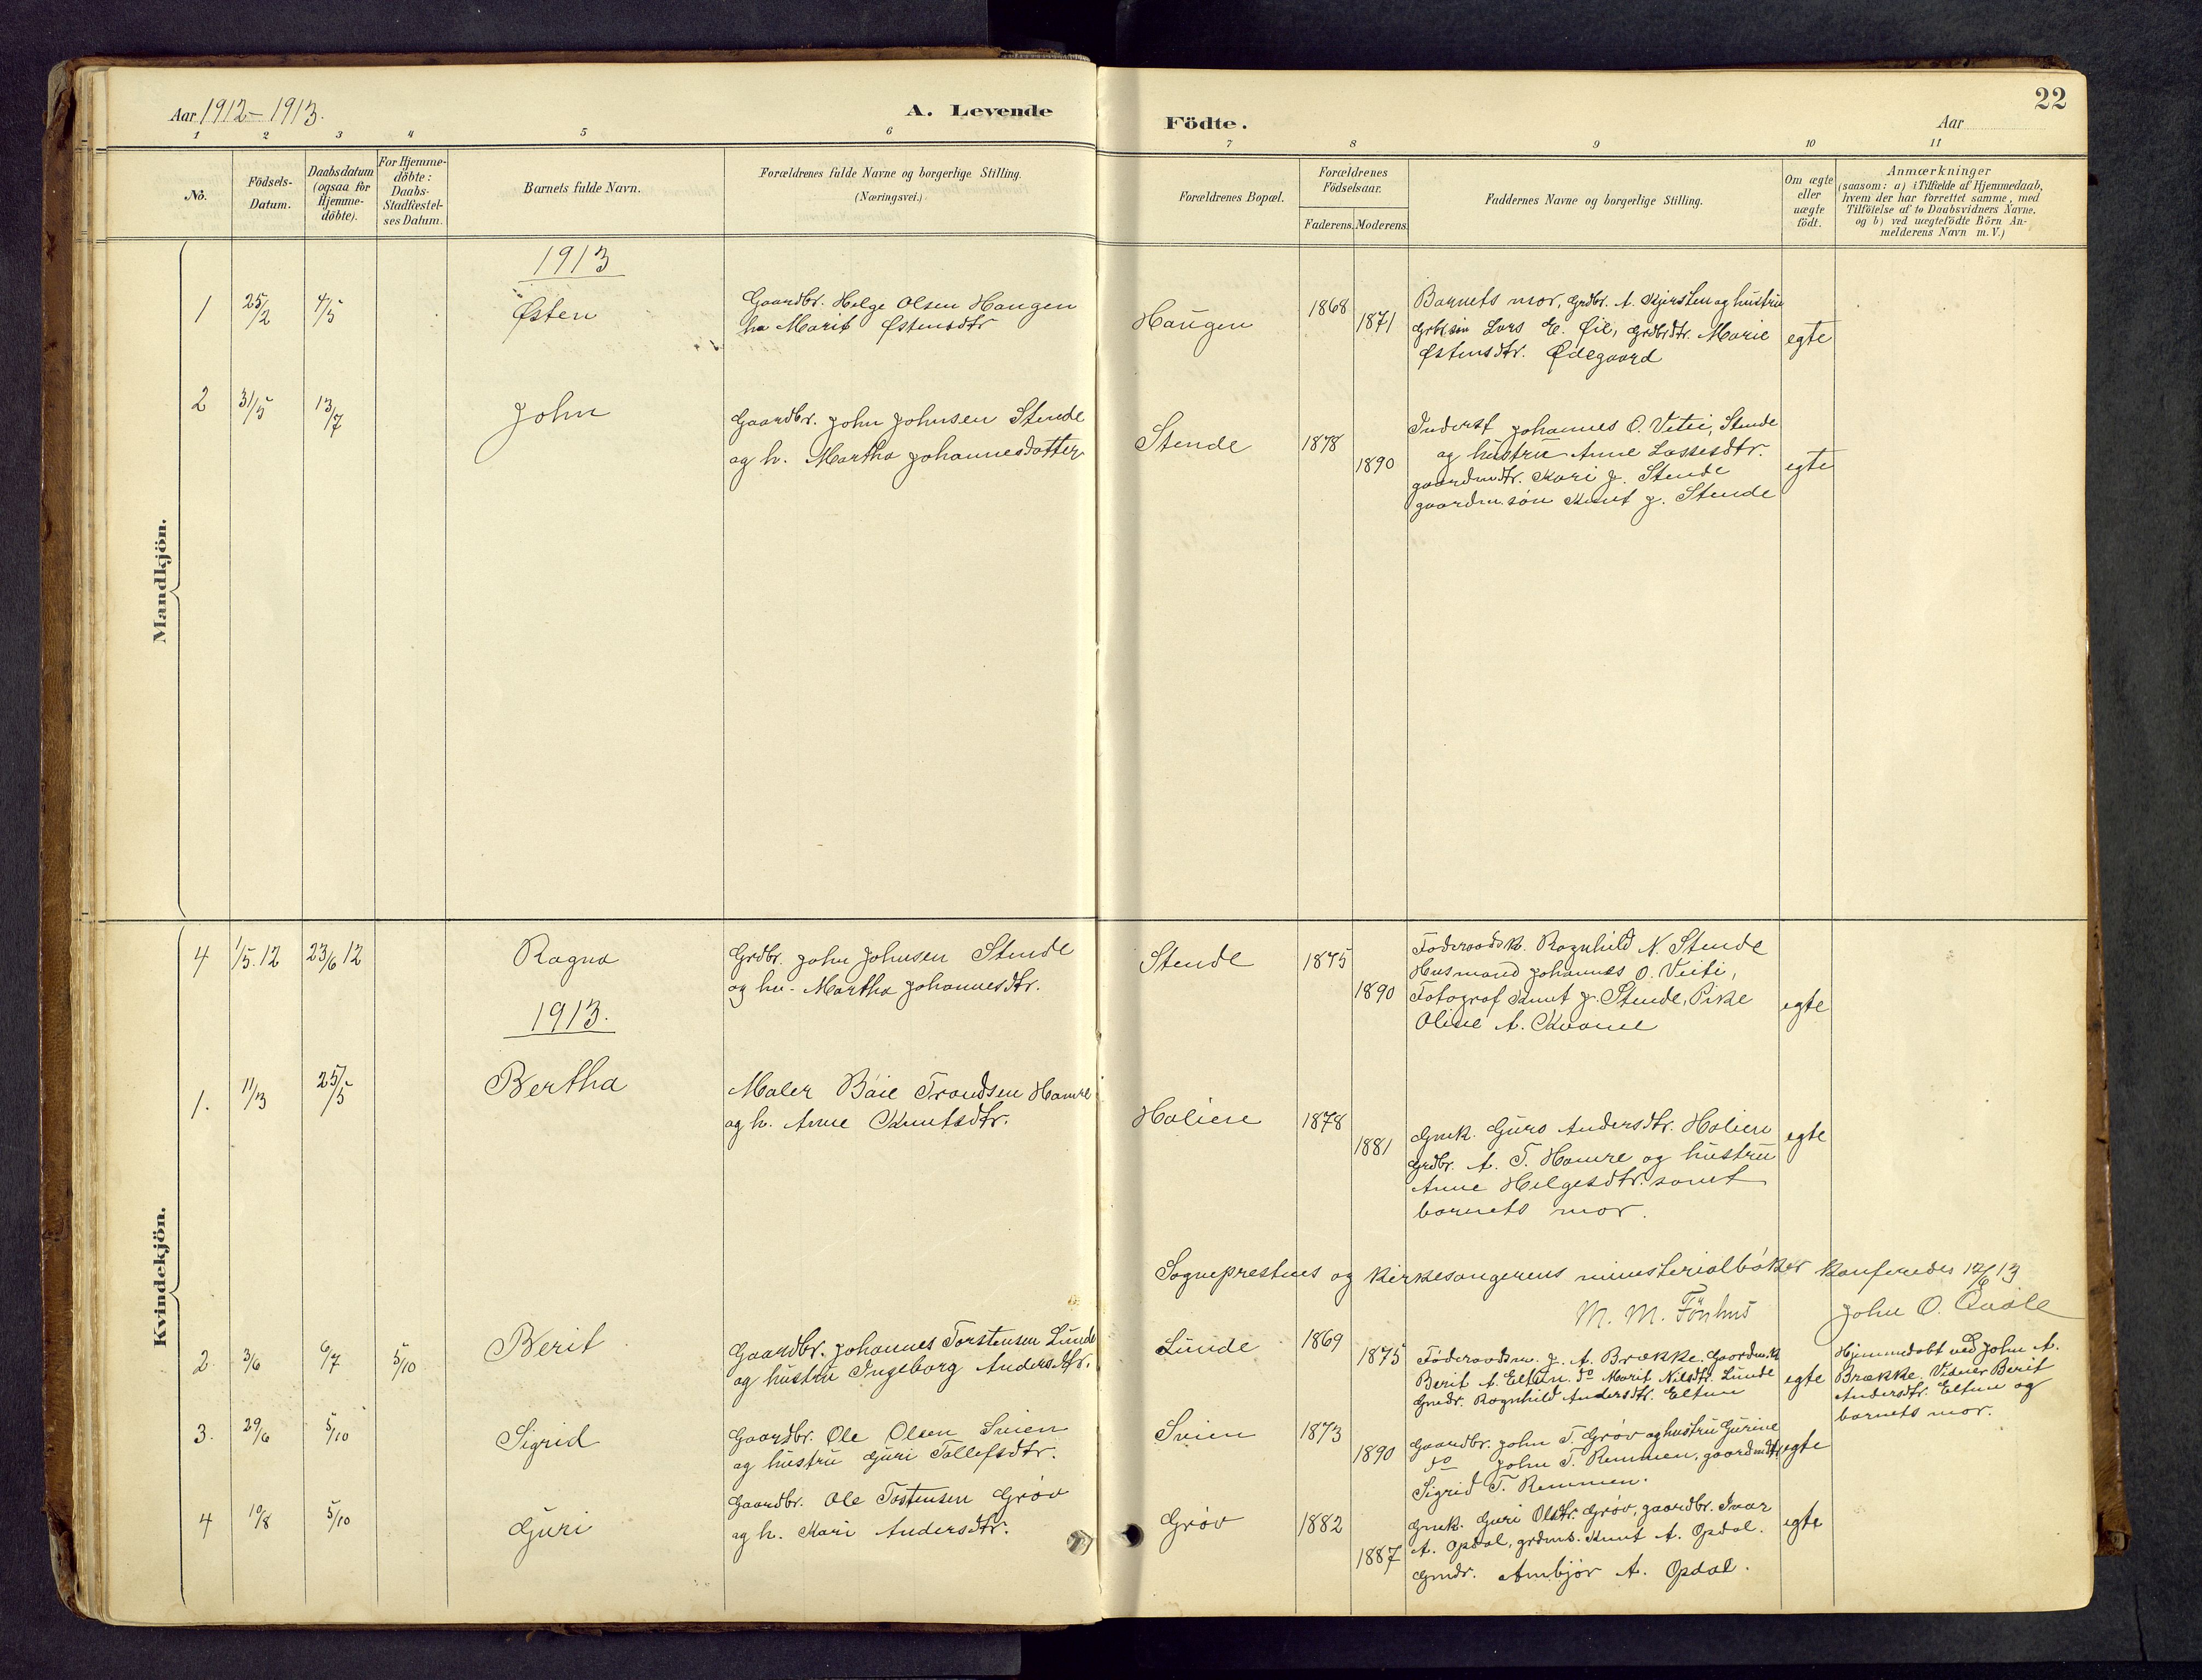 Aar 1912-1913.
A. Levende
Födte.
Aar
22
1 2 3 4 5 6 7 8 9 10 11
No.
Födsels-
Datum.
Daabsdatum
(ogsaa for
Hjemme-
döbte).
For Hjemme-
döbte:
Daabs-
Stadfæstel-
ses Datum.
Barnets fulde Navn.
Forældrenes fulde Navne og borgerlige Stilling.
(Næringsvei.)
Forældrenes Bopæl.
Forældrenes
Födselsaar.
Faderens. Moderens.
Faddernes Navne og borgerlige Stilling.
Om ægte
eller
uægte
födt.
Anmærkninger
(saasom: a) i Tilfælde af Hjemmedaab,
hvem der har forrettet samme, med
Tilföielse af to Daabsvidners Navne,
og b) ved uægtefödte Börn An-
melderens Navn m. V.)
Mandkjön.
1913
1 25/2 4/5 Østen
Gaardbr. Helge Olsen Haugen
hu Marit Østensdtr
Haugen 1868 1871
Barnets mor, grdbr. A. Kjersten og hustru
Lars E. Øie, grdbrdtr. Marie
Østensdtr. Ødegaard
egte
2 31/5 13/7 John
Gaardbr. John Johnsen Stende
og h. Martha Johannesdatter
Stende 1878 1890
Inderst Johannes O. Veti, Stende
og hustru Anne Lassesdtr.
gaardmdtr. Kari J. Stende
gaardm.søn Knut J. Stende
egte
Kvindekjön.
4 1/5.12 23/6 12 Ragna
Grdbr. John Johnsen Stende
og hu. Martha Johannesdtr.
Stende 1875 1890
Föderaadsk. Ragnhild N. Stende
Husmand Johannes O. Veiti,
Fotograf Knut J. Stende, Pike
Oline A. Kvame
egte
1913.
1. 11/3 25/5 Bertha
Maler Boie Trondsen Hamre
og h. Anne Knutsdtr.
Holien 1878 1881
Gmk. Guro Andersdtr. Holien
grdbr. A. T. Hamre og hustru
Anne Helgesdtr. samt
barnets mor.
egte
Sogneprestens og kirkesangerens ministerialbøker konferedes 12/6 13
M. M. Fönhus John O. Qvale
2 3/6 6/7 5/10 Berit
Gaardbr. Johannes Torstensen Lunde
og hustru Ingeborg Andersdtr.
Lunde 1869 1875
Föderaadsm. J. A. Brække. Gaardm.k
Berit A. Eltun. do Marit Nilsdtr. Lunde
Gmdr. Ragnhild Andersdtr. Eltun
egte
Hjemmedøbt ved John A.
Brække. Vidner Berit
Andersdtr. Eltun og
barnets mor.
3. 29/6 5/10 Sigrid
Gaardbr. Ole Olsen Svien
og hustru Guri Tollefsdtr.
Svien 1873 1890
Gaardbr. John T. Grøv og hustru Gurine
do John T. Remmen, gaardmdtr.
Sigrid T. Remmen.
egte
4 10/8 5/10 Guri
Gaardbr. Ole Tostensen Grøv
og h. Kari Andersdtr.
Grøv 1882 1887
Gmk. Guri Olsdtr. Grøv, gaardbr. Ivar
A. Opdal, grdms. Knut A. Opdal.
Gmdr. Ambjør A. Opdal.
egte